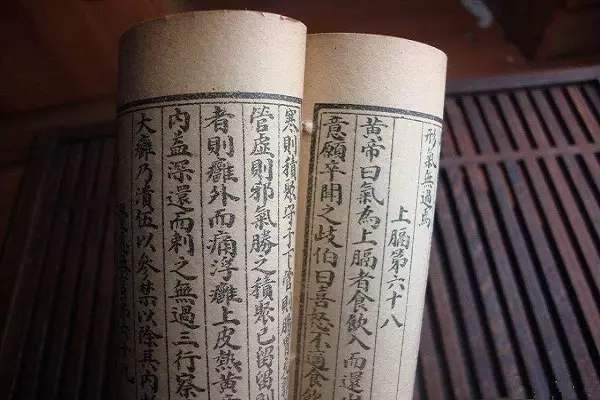 形氣無過焉
上膈第六十八
黃帝曰氣為上膈者食飲入而還
意願卒聞之歧伯曰喜怒不適食飲
寒則積聚守于下管則腸胃
管虛則邪氣勝之積聚已留留則
者則癰外而痛浮癰上皮熱黃
內益深還而刺之無過三行察
大癰乃潰伍以參禁以除其內
第六十九